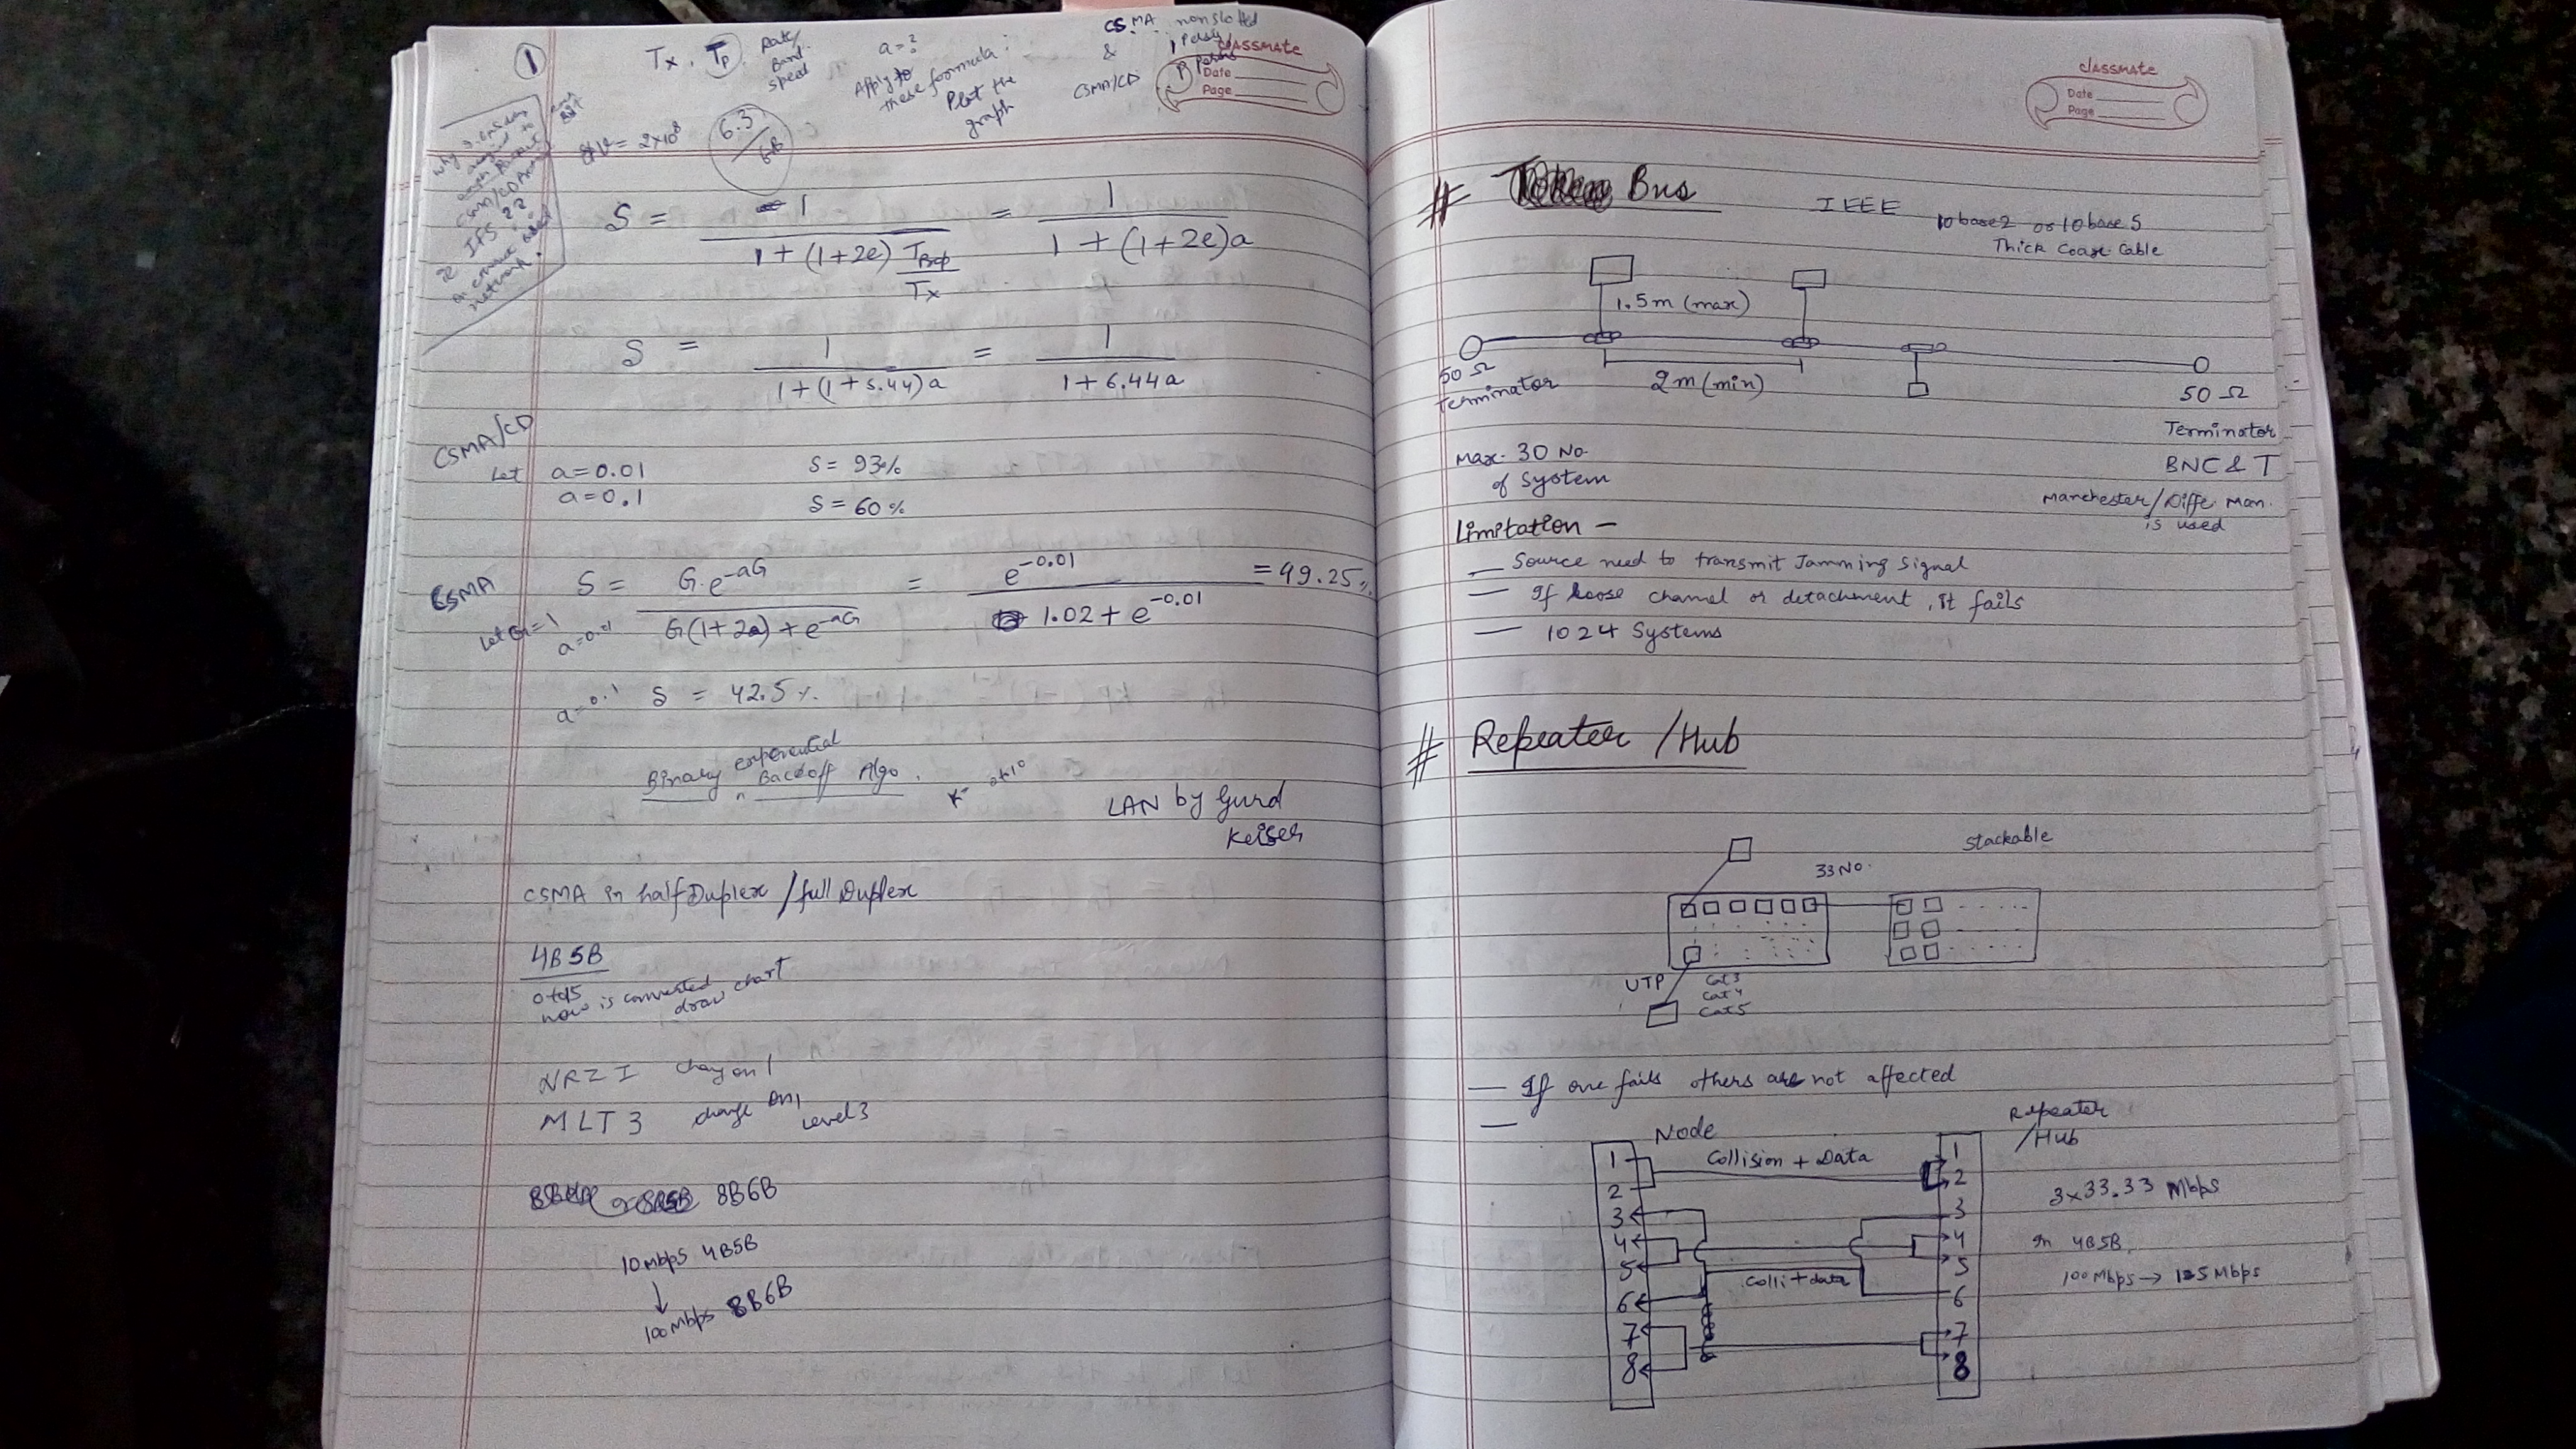 1
Tx, Tp, Rate/
Band
speed
a=?
Apply to
these formula:
Plot the
graph
CSMA nonslotted
&
CSMA/CD
1 Persis
P Persis
classmate
Date
Page
V = 2×10⁸
6.3
6.8
CSMA/CD
IFS ??
network.
S = 1 / 1 + (1+2e) Tp/Tx = 1 / 1 + (1+2e)a
S = 1 / 1+(1+5.44)a = 1 / 1+6.44a
CSMA/CD
Let a=0.01 S= 93%
a=0.1 S= 60%
CSMA S = G.e^-aG / G(1+2a) + e^-aG = e^-0.01 / 1.02 + e^-0.01 = 49.25%
Let G=1
a=0.01
a=0.1 S = 42.5%
Binary exponential
Backoff Algo.
LAN by Gurd
Keiser
CSMA in half Duplex / full Duplex
4B5B
0to15
how is converted
draw chart
NRZ I change on 1
MLT 3 change on 1
level 3
8B6B
10mbps 4B5B
↓
100mbps 8B6B
classmate
Date
Page
# Bus
IEEE 10base2 or 10base5
Thick Coax. Cable
1.5m (max)
50 Ω
Terminator
2m (min)
50 Ω
Terminator
BNC & T
Max. 30 No.
of System
Manchester/Diffe Man.
is used
Limitation –
— Source need to transmit Jamming Signal
— If loose channel or detachement, it fails
— 1024 Systems
# Repeater / Hub
33 No.
stackable
UTP
Cat 3
Cat 4
Cat 5
— If one fails others are not affected
—
Node
Repeater
/Hub
Collision + Data
1 1
2 2
3 3
4 4
5 5
6 6
7 7
8 8
Colli + data
3×33.33 Mbps
In 4B5B
100 Mbps → 125 Mbps